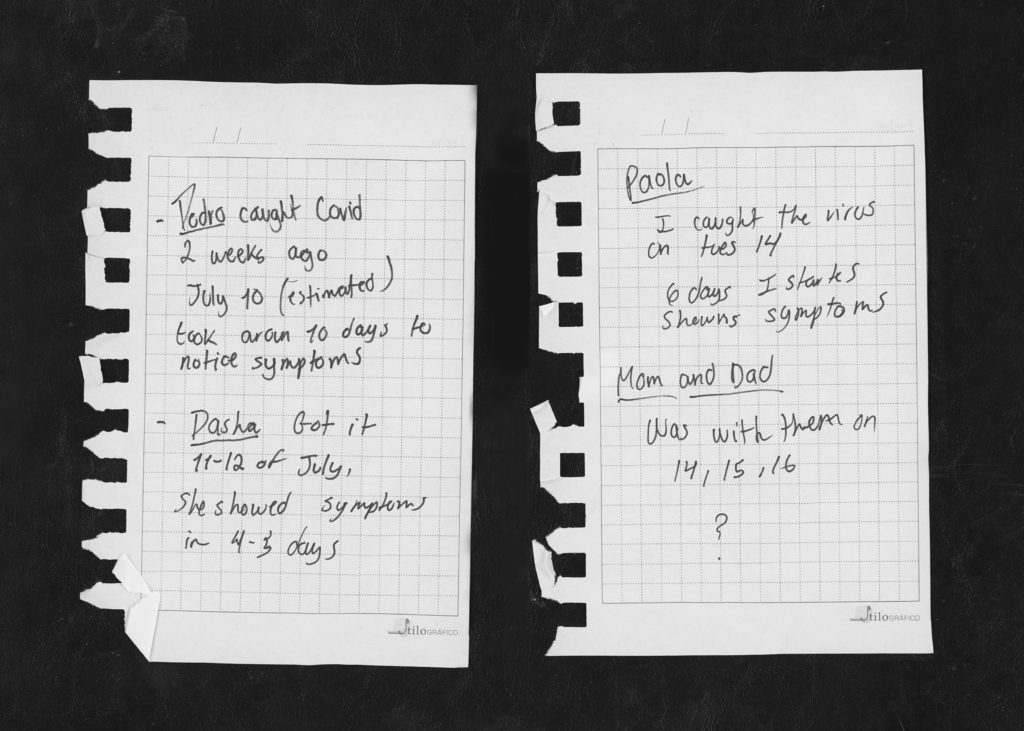 - Pedro caught Covid
2 weeks ago
July 10 (estimated)
took aroun 10 days to
notice symptoms
- Dasha Got it
11-12 of July,
She showed symptoms
in days
StiloGRÁFICO
Paola
I caught the virus
on tues 14
6 days I startes
Shewns symptoms
Mom and Dad
Was with them on
14, 15, 16
?
StiloGRÁFICO